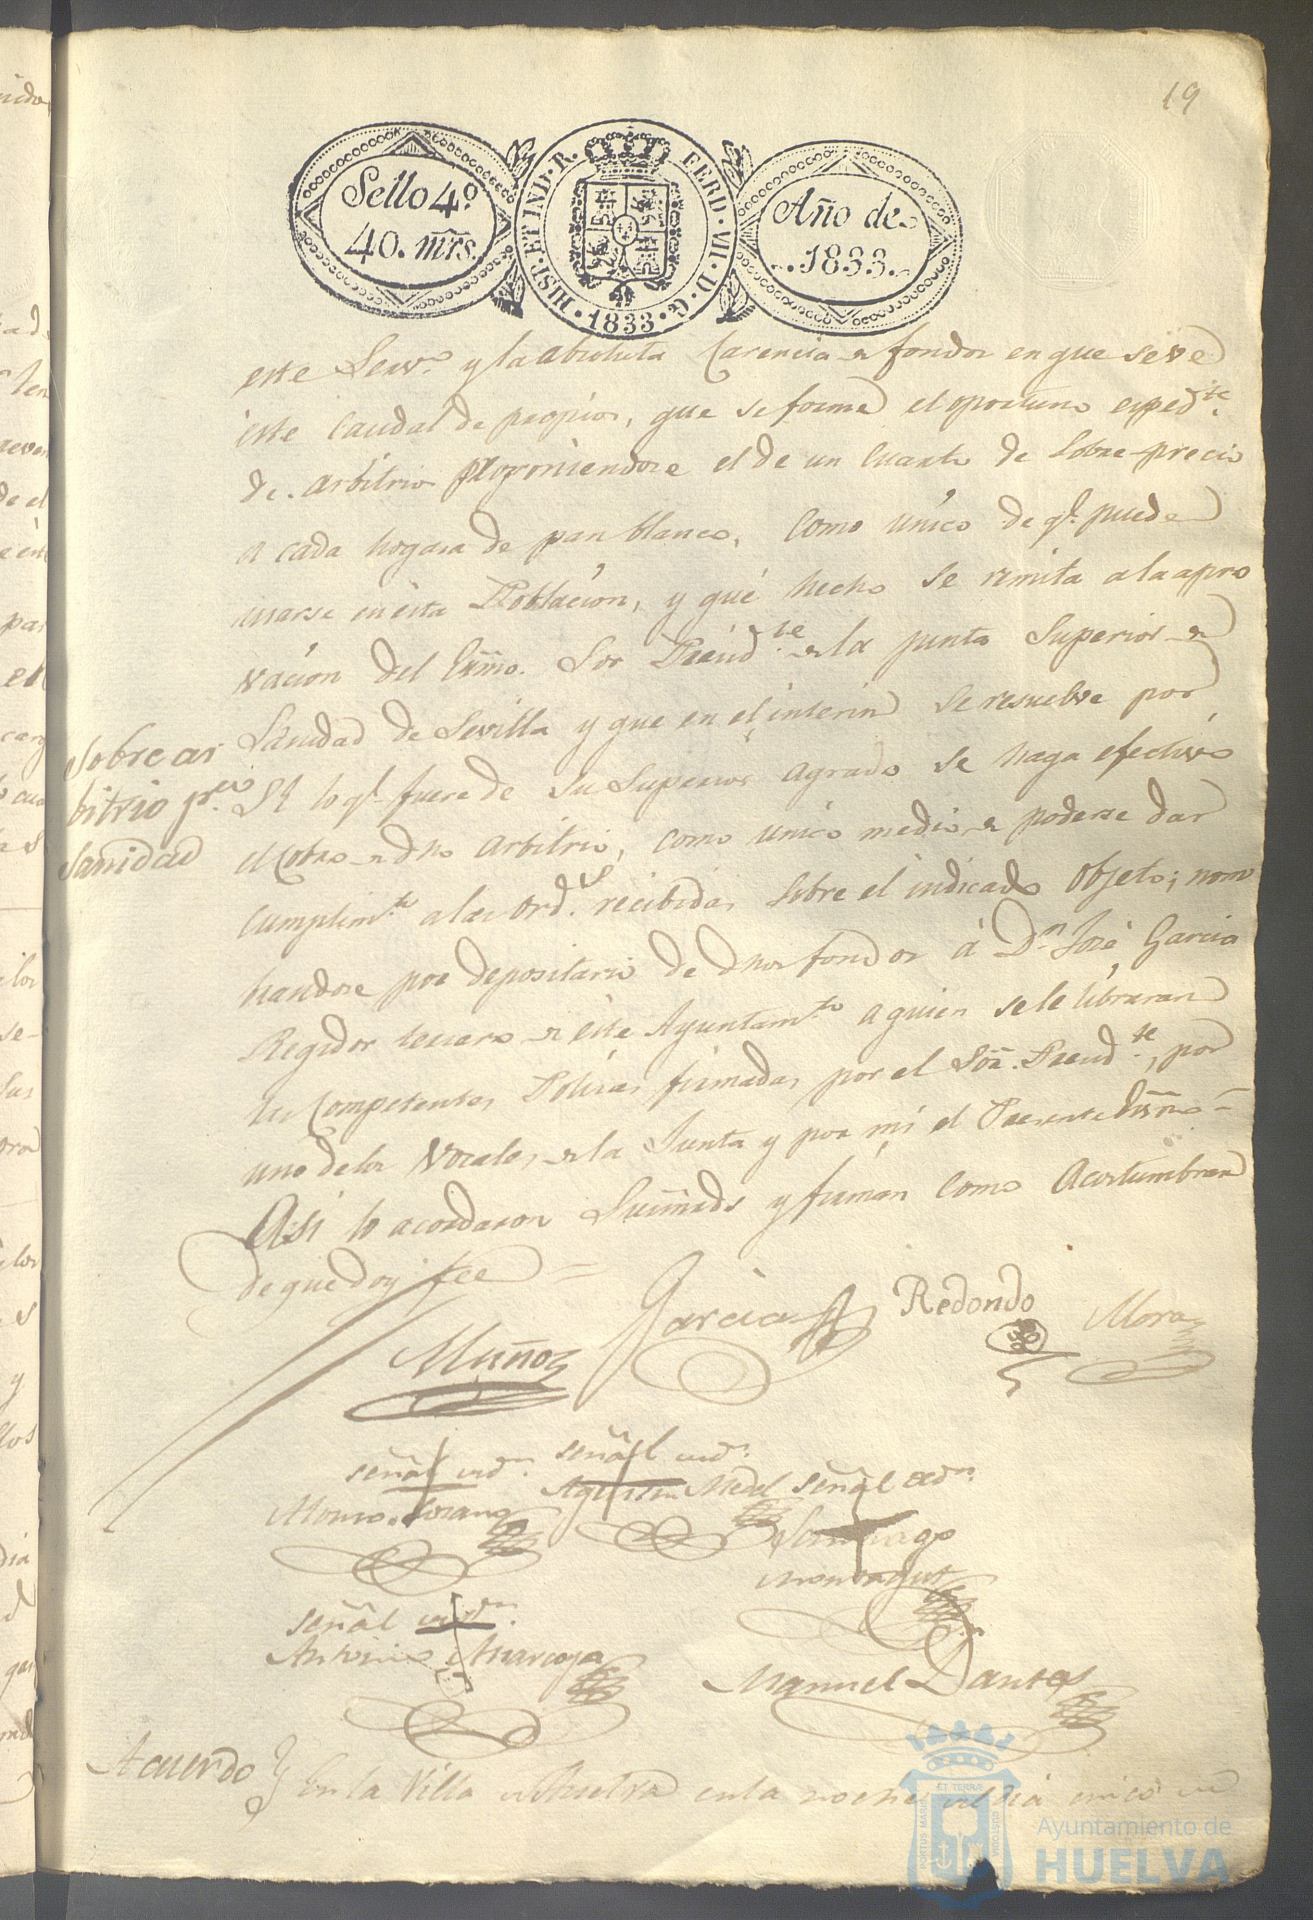 19
Sello 4.º
40. mrs.
HISP. ET IND. R. FERD. VII. D. G. 1833
Año de
1833.
este Serv.º y la absoluta Carencia de fondos en que se ve
este Caudal de propios, que se forme el oportuno exped.te
de arbitrios proponiendose el de un Cuarto de Sobre-precio
a cada hogasa de pan blanco, Como único de q.e puede
usarse en ésta Poblacion, y qué hecho se remita a la apro
vacion del Exmo. Sor Presid.te de la junta Superior de
Sanidad de Sevilla y que en el interin se resuelve por
S.E. lo q.e fuere de su Superior agrado se haga efectivo
el Cobro de dho arbitrio, como único medio de poderse dar
Cumplim.to a las ord.s recibidas sobre el indicado objeto; nom
brandose por depositario de dhos fondos á D.n José Garcia
Regidor tercero de éste Ayuntam.to a quien se le libraran
las Competentes Polisas firmadas por el Sor. Presid.te, por
uno de los Vocales de la Junta y por mi el Presente Essno
Asi lo acordaron Sus mrds y firman como Acostumbran
de que doy fee =
Sobre ar
bitrio p.ra
Sanidad
Muñoz
Garcia
Redondo
Mora
señal de
Alonso Lorano
señal de
Agustin Medel
señal de
Santiago
señal de
Antonio
Manuel Dantes
Acuerdo En la Villa de Huelva en la noche del dia cinco de
PORTUS MARIS ET TERRAE CUSTODIA
Ayuntamiento de
HUELVA